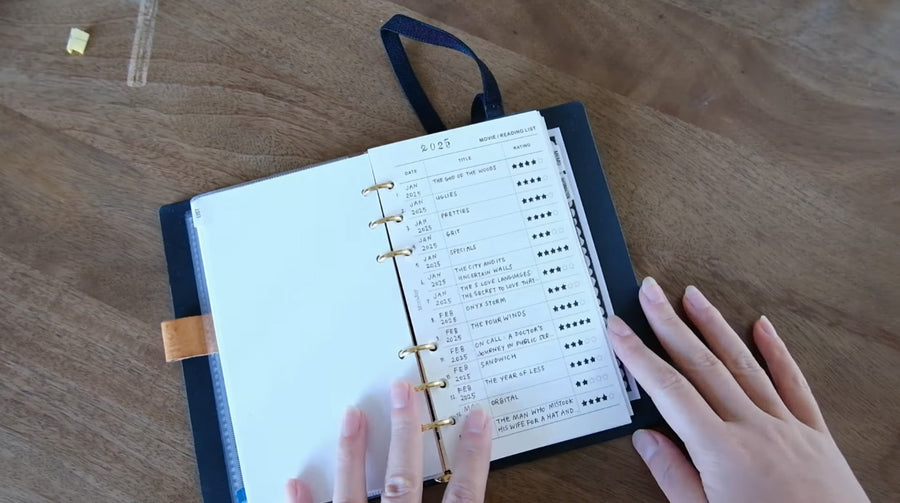 2025 MOVIE/READING LIST
DATE TITLE RATING
1. JAN 2025 THE GOD OF THE WOODS
2. JAN 2025 UGLIES
3. JAN 2025 PRETTIES
JAN 2025 GRIT
5. JAN 2025 SPECIALS
6. JAN 2025 THE CITY AND ITS
UNCERTAIN WALLS
7. JAN 2025 THE 5 LOVE LANGUAGES
THE SECRET TO LOVE THAT
8. FEB 2025 ONYX STORM
9. FEB 2025 THE FOUR WINDS
FEB 2025 ON CALL: A DOCTOR'S
JOURNEY IN PUBLIC SER
FEB 2025 SANDWICH
12. FEB 2025 THE YEAR OF LESS
ORBITAL
THE MAN WHO MISTOOK
HIS WIFE FOR A HAT AND